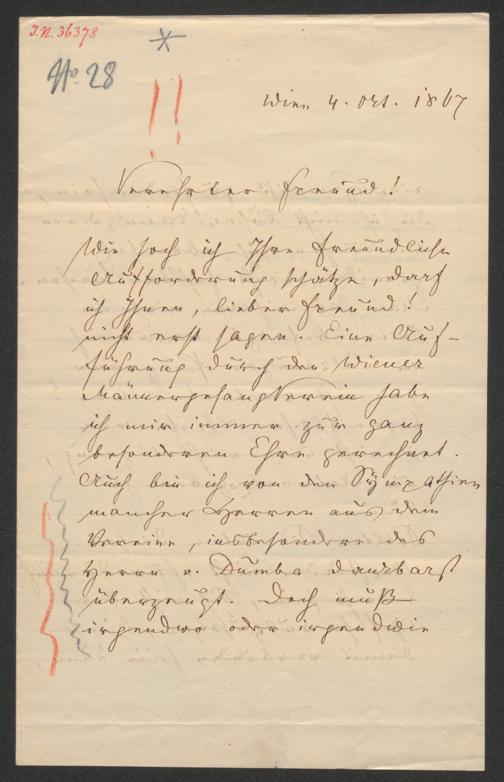 J.N. 36378
No. 28
!!
Wien 4. Okt. 1867
Verehrter Freund!
Wie hoch ich Ihre freundliche
Aufforderung schätze, darf
ich Ihnen, lieber Freund!
nicht erst sagen. Eine Auf-
führung durch den Wiener
Männergesangverein habe
ich mir immer zur ganz
besonderen Ehre gerechnet.
Auch bin ich von den Sympathien
mancher Herren aus dem
Vereine, insbesondere des
Herrn v. Dumba dankbarst
überzeugt. Doch muß
irgendwo oder irgendwie